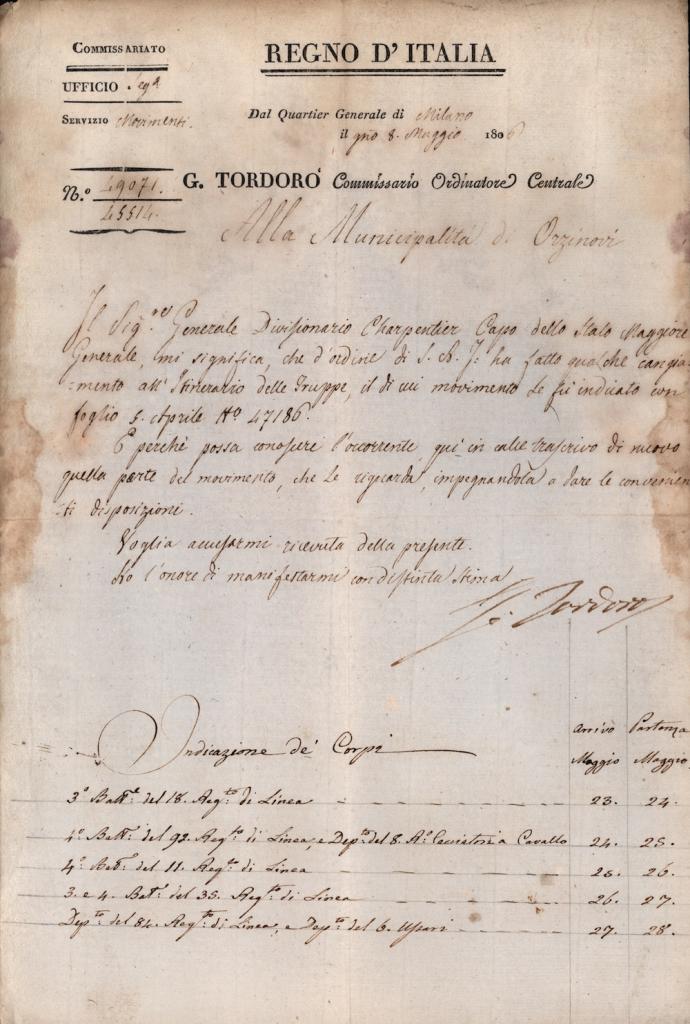 COMMISSARIATO
REGNO D'ITALIA
UFFICIO Seg.a
SERVIZIO Movimenti.
Dal Quartier Generale di Milano
il gno 8. Maggio 1806
N.º 49071.
45514.
G. TORDORÒ Commissario Ordinatore Centrale
Alla Municipalità di Orzinovi
Il Sig.re Generale Divisionario Charpentier Capo dello Stato Maggiore
Generale, mi significa, che d'ordine di S. A. I. ha fatto qualche cangia-
-mento all'Itinerario delle Truppe, il di cui movimento Le fù indicato con
foglio 5. Aprile Nº 47186.
E perchè possa conoscere l'occorrente, quì in calce trascrivo di nuovo
quella parte del movimento, che Le riguarda, impegnandola a dare le convenien
ti disposizioni.
Voglia accusarmi ricevuta della presente.
Ho l'onore di manifestarmi con distinta stima
G. Tordorò
Indicazione de' Corpi
Arrivo Partenza
Maggio Maggio
3º Batt.e del 18. Reg.to di Linea 23. 24.
4º Batt. del 92. Reg.to di Linea, e Dep.to del 8. Rº Cacciatori a Cavallo 24. 25.
4º Bat. del 11. Reg.to di Linea 25. 26.
3. e 4. Bat. del 35. Reg.to di Linea 26. 27.
Dep.to del 84. Reg.to di Linea, e Dep.to del 6. Ussari 27. 28.